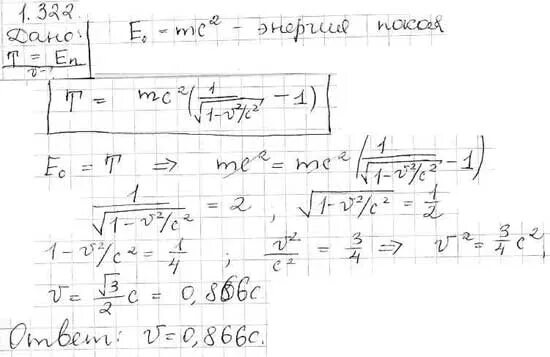 1.322.
Дано: E₀ = mc² - энергия покоя
T = Eп
v - ?
T = mc²(1/√(1-v²/c²) - 1)
E₀ = T ⇒ mc² = mc²(1/√(1-v²/c²) - 1)
1/√(1-v²/c²) = 2, √(1-v²/c²) = 1/2
1-v²/c² = 1/4; v²/c² = 3/4 ⇒ v² = 3/4 c²,
v = √3/2 c = 0,866c
Ответ: v = 0,866c.